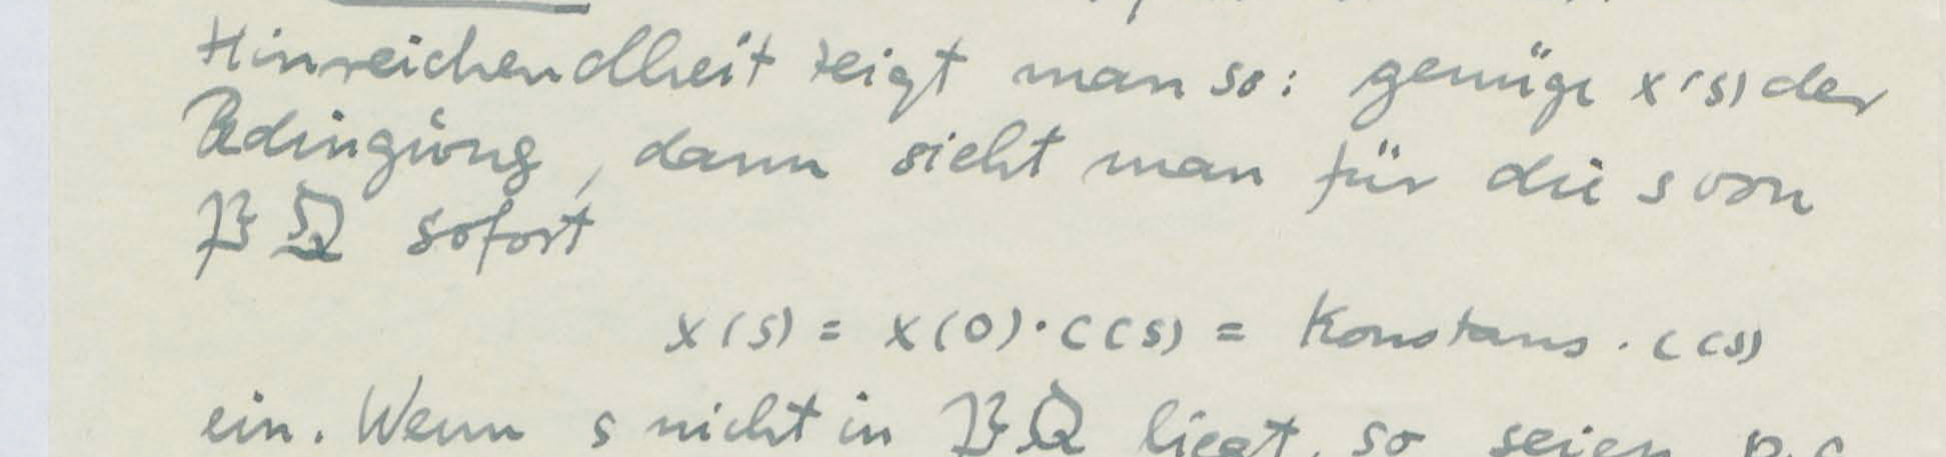 Hinreichendheit zeigt man so: genüge x(s) der
Bedingung, dann sieht man für die s von
𝔓𝔔 sofort
x(s) = x(0)·c(s) = Konstans · c(s)
ein. Wenn s nicht in 𝔓𝔔 liegt, so seien p, c